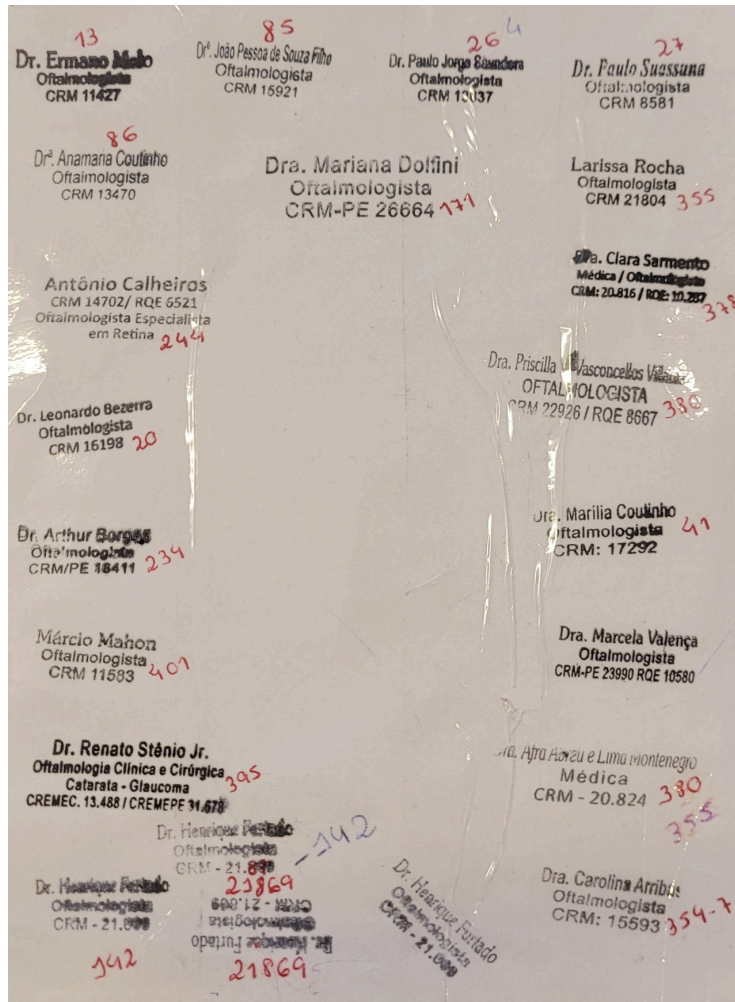 13
Dr. Ermano Melo
Oftalmologista
CRM 11427
85
Drº. João Pessoa de Souza Filho
Oftalmologista
CRM 15921
26 4
Dr. Paulo Jorge Saunders
Oftalmologista
CRM 13037
27
Dr. Paulo Suassuna
Oftalmologista
CRM 8581
86
Drª. Anamaria Coutinho
Oftalmologista
CRM 13470
Dra. Mariana Dolfini
Oftalmologista
CRM-PE 26664 171
Larissa Rocha
Oftalmologista
CRM 21804 355
Dra. Clara Sarmento
Médica / Oftalmologista
CRM: 20.816 / RQE: 10.287
378
Antônio Calheiros
CRM 14702/ RQE 6521
Oftalmologista Especialista
em Retina 244
Dra. Priscilla Vasconcellos
OFTALMOLOGISTA
CRM 22926 / RQE 8667 380
Dr. Leonardo Bezerra
Oftalmologista
CRM 16198 20
Dra. Marilia Coutinho
Oftalmologista 41
CRM: 17292
Dr. Arthur Borges
Oftalmologista
CRM/PE 18411 234
Márcio Mahon
Oftalmologista
CRM 11583 401
Dra. Marcela Valença
Oftalmologista
CRM-PE 23990 RQE 10580
Dr. Renato Stênio Jr.
Oftalmologia Clínica e Cirúrgica
Catarata - Glaucoma 395
CREMEC. 13.488 / CREMEPE 31.678
Dra. Afra Abreu e Lima Montenegro
Médica
CRM - 20.824 380
355
Dr. Henrique Furtado
Oftalmologista -142
CRM - 21.869
21869
Dr. Henrique Furtado
Oftalmologista
CRM - 21.869
142
Dr. Henrique Furtado
Oftalmologista
CRM - 21.869
21869
Dr. Henrique Furtado
Oftalmologista
CRM - 21.869
Dra. Carolina Arribas
Oftalmologista
CRM: 15593 354-7